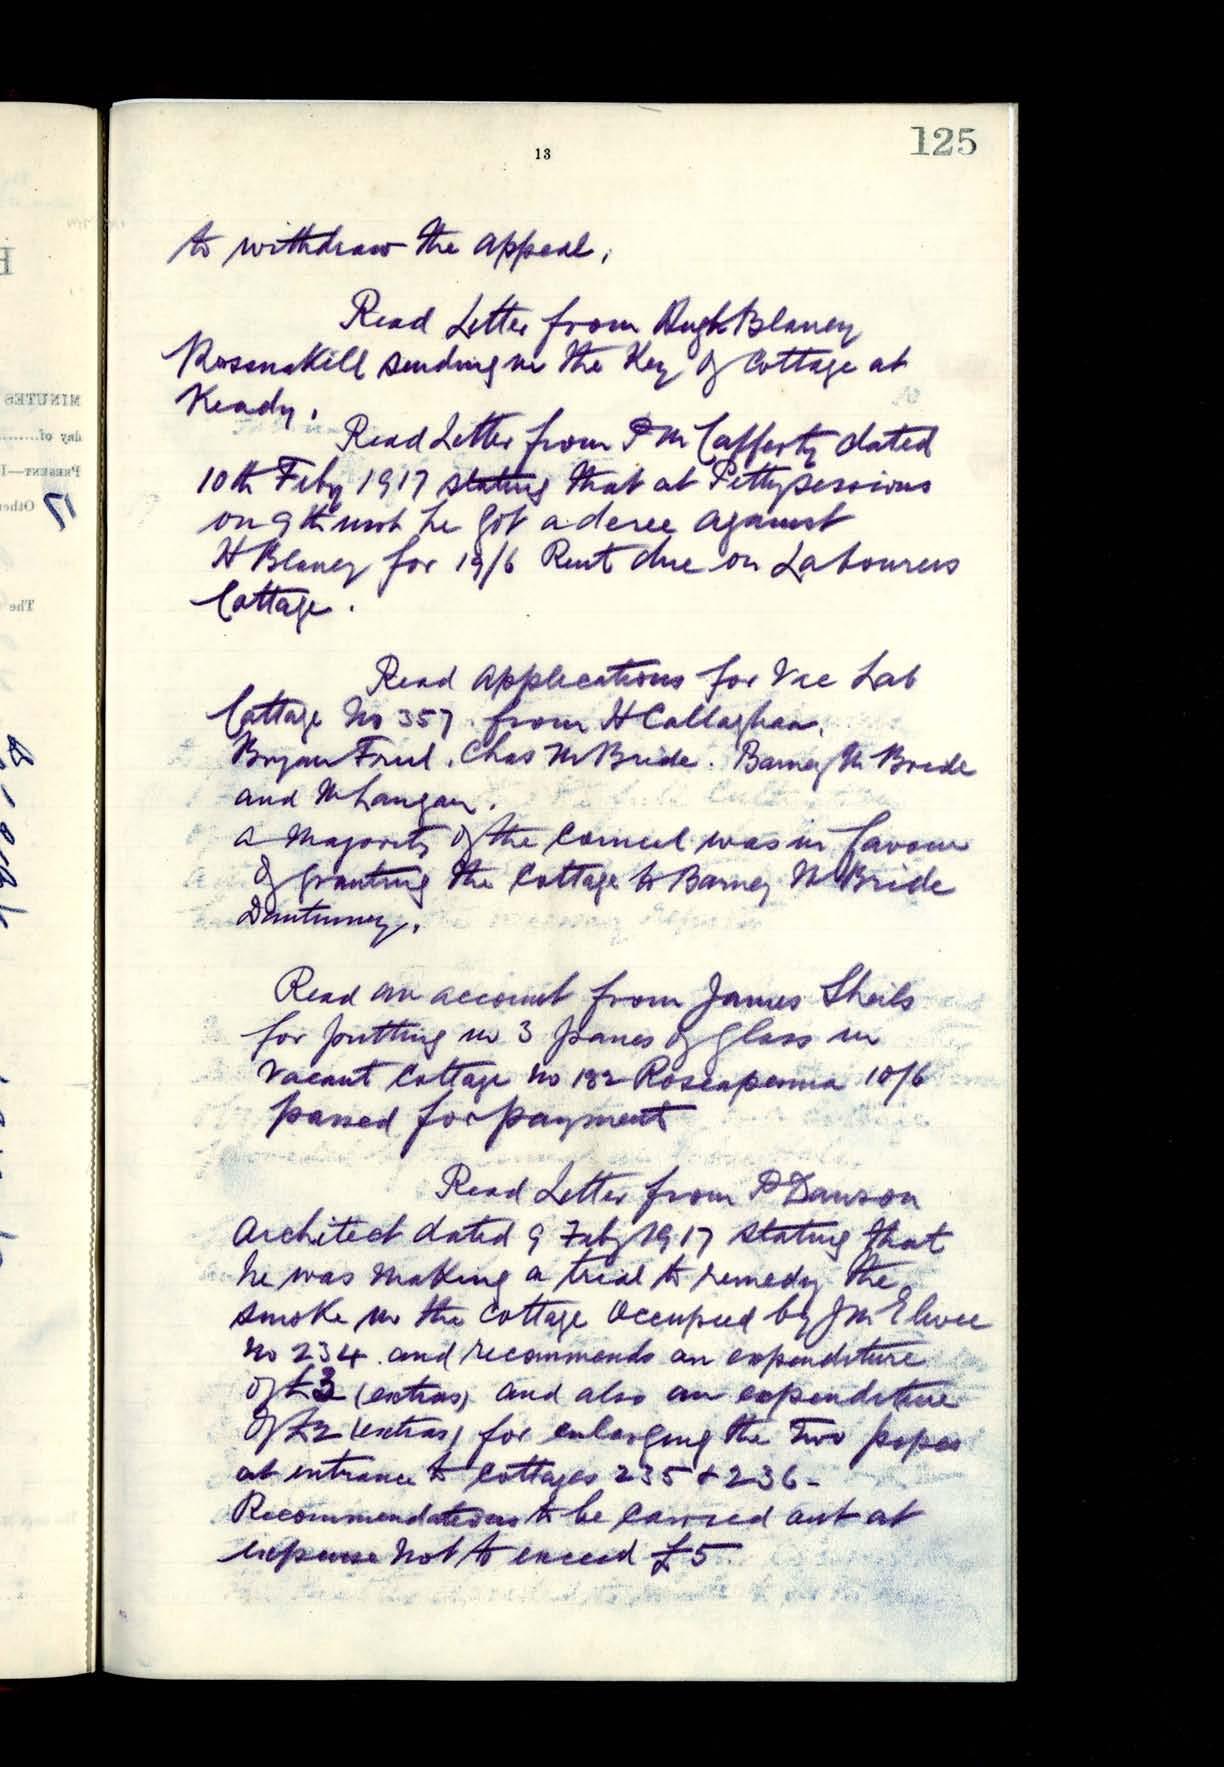 125
13
to withdraw the appeal.
Read Letter from Hugh Blaney
Rossnakill sending in the Key of Cottage at
Keady.
Read Letter from P McCafferty dated
10th Feby 1917 stating that at Petty sessions
on 9th inst he got a decree against
H Blaney for 19/6 Rent due on Labourers
Cottage.
Read applications for Vac Lab
Cottage No 357 from H Callaghan,
Bryan Friel. Chas McBride. Barney McBride
and M Langan.
a majority of the Council was in favour
of granting the Cottage to Barney McBride
Read an account from James Sheils
for putting in 3 panes of glass in
Vacant Cottage No 182 Roseapenna 10/6
passed for payment
Read Letter from P Dawson
Architect dated 9 Feby 1917 stating that
he was making a trial to remedy the
smoke in the cottage occupied by J McElwee
No 234 and recommends an expenditure
of £3 (extras) and also an expenditure
of £2 (extras) for enlarging the two pipes
at entrance to Cottages 235 & 236 -
Recommendations to be carried out at
expense not to exceed £5
MINUTES
day of
PRESENT—
Other
The